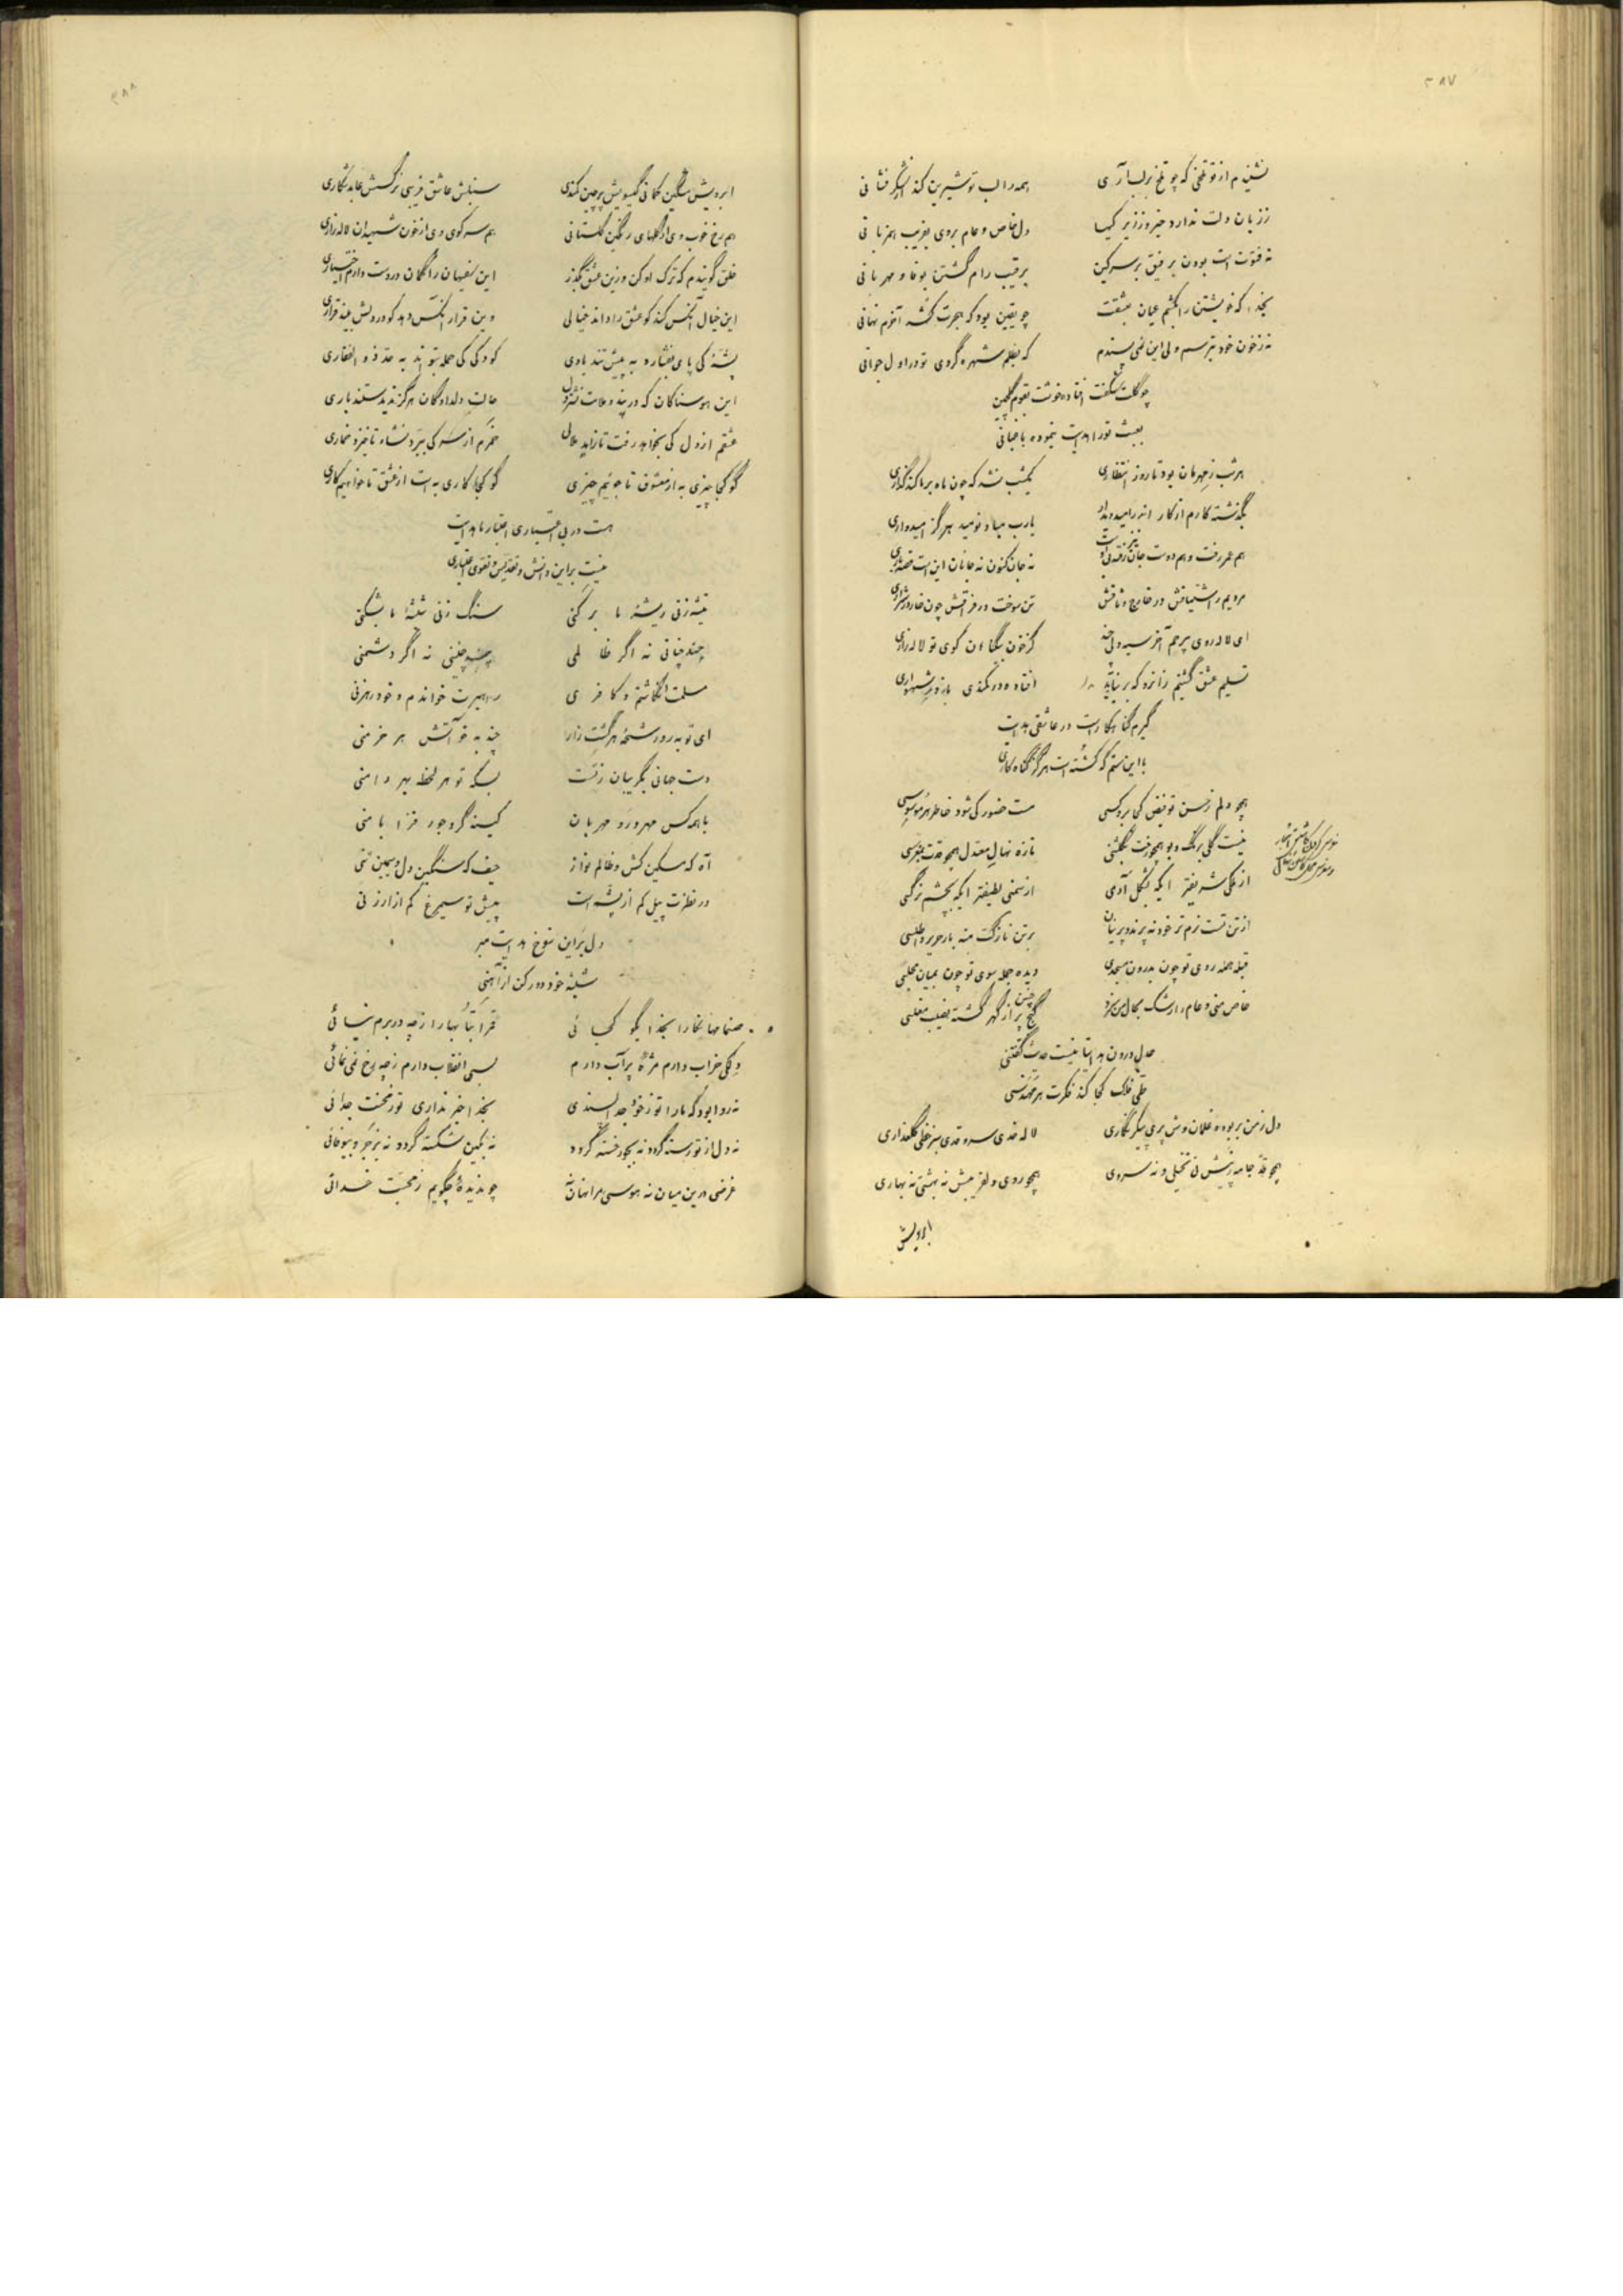 ۳۸۷
نشنیدم از تو تلخی که چو تلخ بر لب آری همه را لب تو شیرین کند از شکر فشانی
ز زیان دلت ندارد خبر و ز زیر کیها دل خاص و عام بروی بفریب همزبانی
نه فتوت است بودن بر فیق بر سر کین برقیب رام گشتن بوفا و مهربانی
بخدا که خویشتن را بکشم عیان بعشقت چو یقین بود که هجرت کشد آخرم نهانی
نه ز خون خود بترسم ولی این نمی پسندم که بظلم شهره گردی تو در اول جوانی
چو گلت شگفت افتاده خوشت بقوم گلچین
بعبث تو را هدایت ننموده باغبانی
هر شب ز مهرمان بود تا روز انتظاری یکشب نشد که چون ماه بر ما کند گذاری
بگذشته کارم از کار اندر امید دیدار یارب مباد نومید هرگز امیدواری
هم عمر رفت و هم دوست جان رفته نیز نه جان کنون نه جانان این است قصه
مردیم ز اشتیاقش در خارج وثاقش تن سوخت در فراقش چون خار در شراری
ای لاله روی بیرحم آخر سیه دلی چند کز خون بیگناهان کوی تو لاله زاری
تسلیم عشق گشتیم زانرو که بر نیاید افتاده در کمندی با زور شهسواری
گیرم گناهکار است در عاشقی هدایت
با این ستم که کشته است هرگز گناه کاری
همچو دلم ز حسن تو فیض کجا برد کسی مست حضور کی شود خاطر هر موسوسی
نیست گلی برنگ و بو همچو رخت بگلشنی تازه نهال معتدل همچو قدت
از ملکی شریفتر ایکه بشکل آدمی از سمنی لطیفتر ایکه بچشم نرگسی
از تن تست نرم تر خود نه پرند و پرنیان بر تن نازکت منه بار حریر و اطلسی
قبله همه روی تو چون بدرون مسجدی دیده جمله سوی تو چون بمیان مجلسی
خاص منی و عام را رشک بحال من برد گنج چنین پر از گهر گشته نصیب مفلسی
حال درون هدایتا نیست حدیث گفتنی
طی فلک کجا کند فکرت هر مهندسی
دل ز من بربوده غلمان وش پری پیکر نگاری لاله خدی سرو قدی سبز خطی گلعذاری
همچو قد جامه زیبش نی نخیلی و نه سروی همچو روی دلفریبش نه بهشتی نه بهاری
ابرویش
۳۸۸
ابرویش مشگین کمانی گیسویش پر چین کمندی سنبلش عاشق فریبی نرگسش عابد شکاری
هم رخ خوب وی از گلهای رنگین گلستانی هم سر کوی وی از خون شهیدان لاله زاری
خلق گویندم که ترک او کن و زین عشق بگذر این سفیهان را گمان در دوست دارم اختیاری
این خیال آنکس کند کو عشق را داند خیالی وین قرار آنکس دهد کو در دلش بیند قراری
پشه کی پای بفشارد به پیش تند بادی کودکی کی حمله بتواند به حد ذو الفقاری
این هوسناکان که در پند و ملامت حالت دلدادگان هرگز ندیدستند باری
عشقم از دل کی بخواهد رفت تا زاید ملالی خمرم از سر کی بپرد نشاه تا خیزد خماری
گو کجا چیزی به از معشوق تا جوئیم چیزی گو کجا کاری به است از عشق تا خواهیم کاری
هست در بی اعتباری اعتبار ما هدایت
نیست بر این دانش و تقدیس و تقوی اعتباری
تیشه زنی ریشه ما بر کنی سنگ زنی شیشه ما بشکنی
چند چنانی نه اگر ظالمی چند چنینی نه اگر دشمنی
مسلمت انگاشتم و کافری رهبرت خواندم و خود رهزنی
ای تو به رو رشحه هر کشت زار چند به خو آتش هر خرمنی
دست جهانی بگریبان ز تست بسکه تو هر لحظه بهر دامنی
با همه کس مهر ور و مهربان کینه گر و جور فزا با منی
آه که مسکین کش و ظالم نواز حیف که سنگین دل و سیمین تنی
در نظرت پیل کم از پشه است پیش تو سیمرغ کم از ارزنی
دل بر این شوخ هدایت مبر
شیشه خود دور کن از آهنی
صنما نگارا بخدا بگو کجائی قمرا بتا بهارا ز چه در برم نیائی
دلکی خراب دارم مژه پر آب دارم بسی انقلاب دارم ز چه رخ نمی نمائی
نه روا بود که ما را تو ز خود جدا پسندی بخدا خبر نداری تو ز محنت جدائی
نه دل از تو رسته گردد نه بجور خسته گردد نه بکین شکسته گردد نه بزجر و بیوفائی
غرضی درین میان نه هوسی مرا نهان نه چو ندیده چگویم ز محبت خدائی